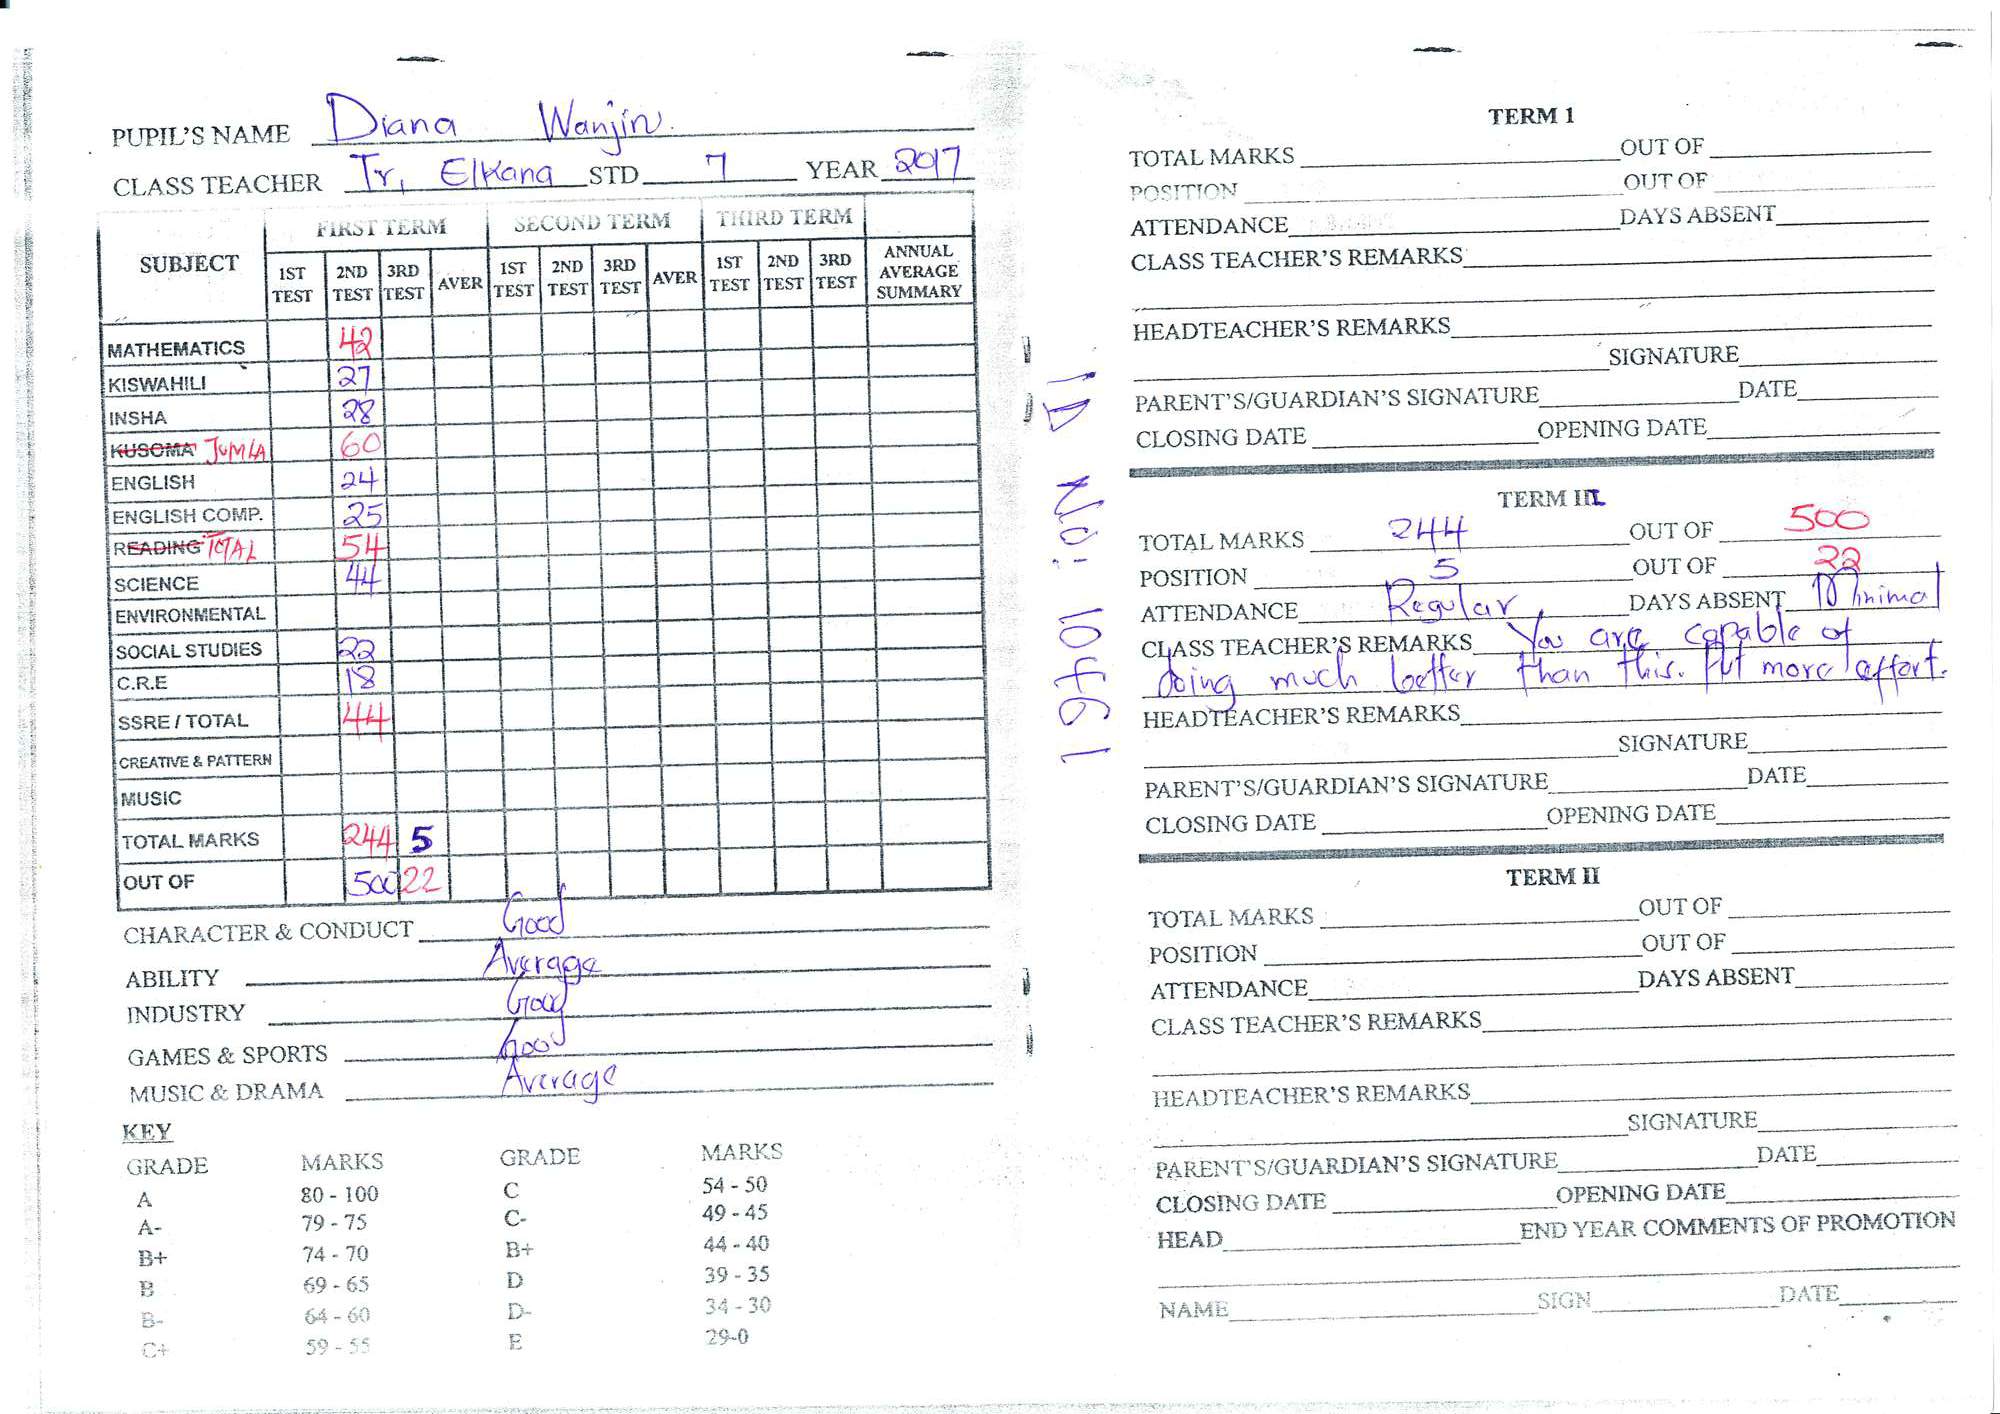 PUPIL'S NAME Diana Wanjiru
CLASS TEACHER Tr, Elkana STD 7 YEAR 2017
SUBJECT FIRST TERM SECOND TERM THIRD TERM
1ST TEST 2ND TEST 3RD TEST AVER 1ST TEST 2ND TEST 3RD TEST AVER 1ST TEST 2ND TEST 3RD TEST ANNUAL AVERAGE SUMMARY
MATHEMATICS 42
KISWAHILI 27
INSHA 28
KUSOMA JUMLA 60
ENGLISH 24
ENGLISH COMP. 25
READING TOTAL 54
SCIENCE 44
ENVIRONMENTAL
SOCIAL STUDIES 22
C.R.E 18
SSRE / TOTAL 44
CREATIVE & PATTERN
MUSIC
TOTAL MARKS 244 5
OUT OF 500 22
CHARACTER & CONDUCT Good
ABILITY Average
INDUSTRY Good
GAMES & SPORTS Good
MUSIC & DRAMA Average
KEY
GRADE MARKS GRADE MARKS
A 80 - 100 C 54 - 50
A- 79 - 75 C- 49 - 45
B+ 74 - 70 B+ 44 - 40
B 69 - 65 D 39 - 35
B- 64 - 60 D- 34 - 30
C+ 59 - 55 E 29-0
ID No: 10761
TERM 1
TOTAL MARKS OUT OF
POSITION OUT OF
ATTENDANCE DAYS ABSENT
CLASS TEACHER'S REMARKS
HEADTEACHER'S REMARKS
SIGNATURE
PARENT'S/GUARDIAN'S SIGNATURE DATE
CLOSING DATE OPENING DATE
TERM III
TOTAL MARKS 244 OUT OF 500
POSITION 5 OUT OF 22
ATTENDANCE Regular, DAYS ABSENT Minimal
CLASS TEACHER'S REMARKS You are capable of
doing much better than this. Put more effort.
HEADTEACHER'S REMARKS
SIGNATURE
PARENT'S/GUARDIAN'S SIGNATURE DATE
CLOSING DATE OPENING DATE
TERM II
TOTAL MARKS OUT OF
POSITION OUT OF
ATTENDANCE DAYS ABSENT
CLASS TEACHER'S REMARKS
HEADTEACHER'S REMARKS
SIGNATURE
PARENT'S/GUARDIAN'S SIGNATURE DATE
CLOSING DATE OPENING DATE
HEAD END YEAR COMMENTS OF PROMOTION
NAME SIGN DATE